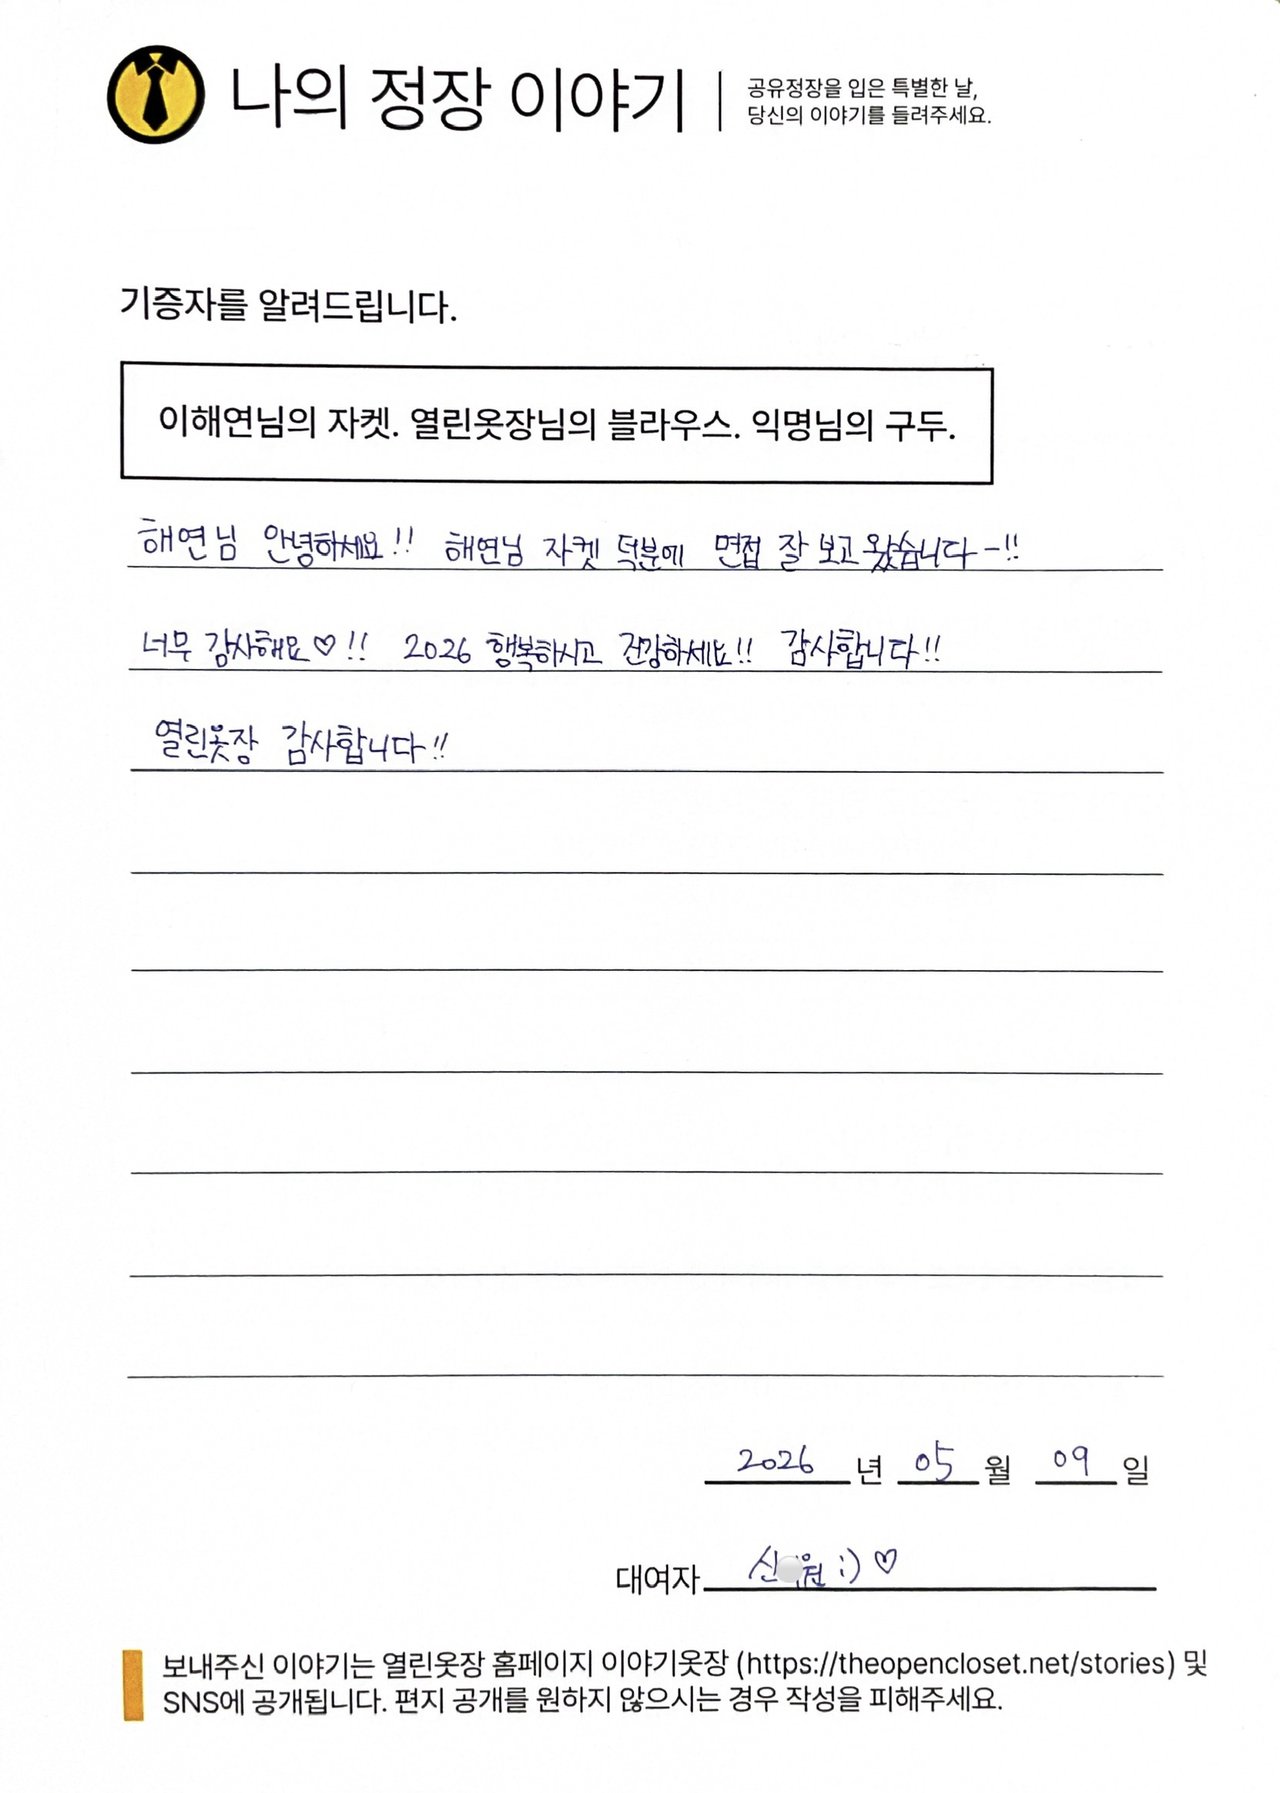 나의 정장 이야기
공유정장을 입은 특별한 날,
당신의 이야기를 들려주세요.
기증자를 알려드립니다.
이해연님의 자켓. 열린옷장님의 블라우스. 익명님의 구두.
해연님 안녕하세요!! 해연님 자켓 덕분에 면접 잘 보고 왔습니다-!!
너무 감사해요♡!! 2026 행복하시고 건강하세요!! 감사합니다!!
열린옷장 감사합니다!!
2026 년 05 월 09 일
대여자 신 원 :) ♡
보내주신 이야기는 열린옷장 홈페이지 이야기옷장 (https://theopencloset.net/stories) 및
SNS에 공개됩니다. 편지 공개를 원하지 않으시는 경우 작성을 피해주세요.